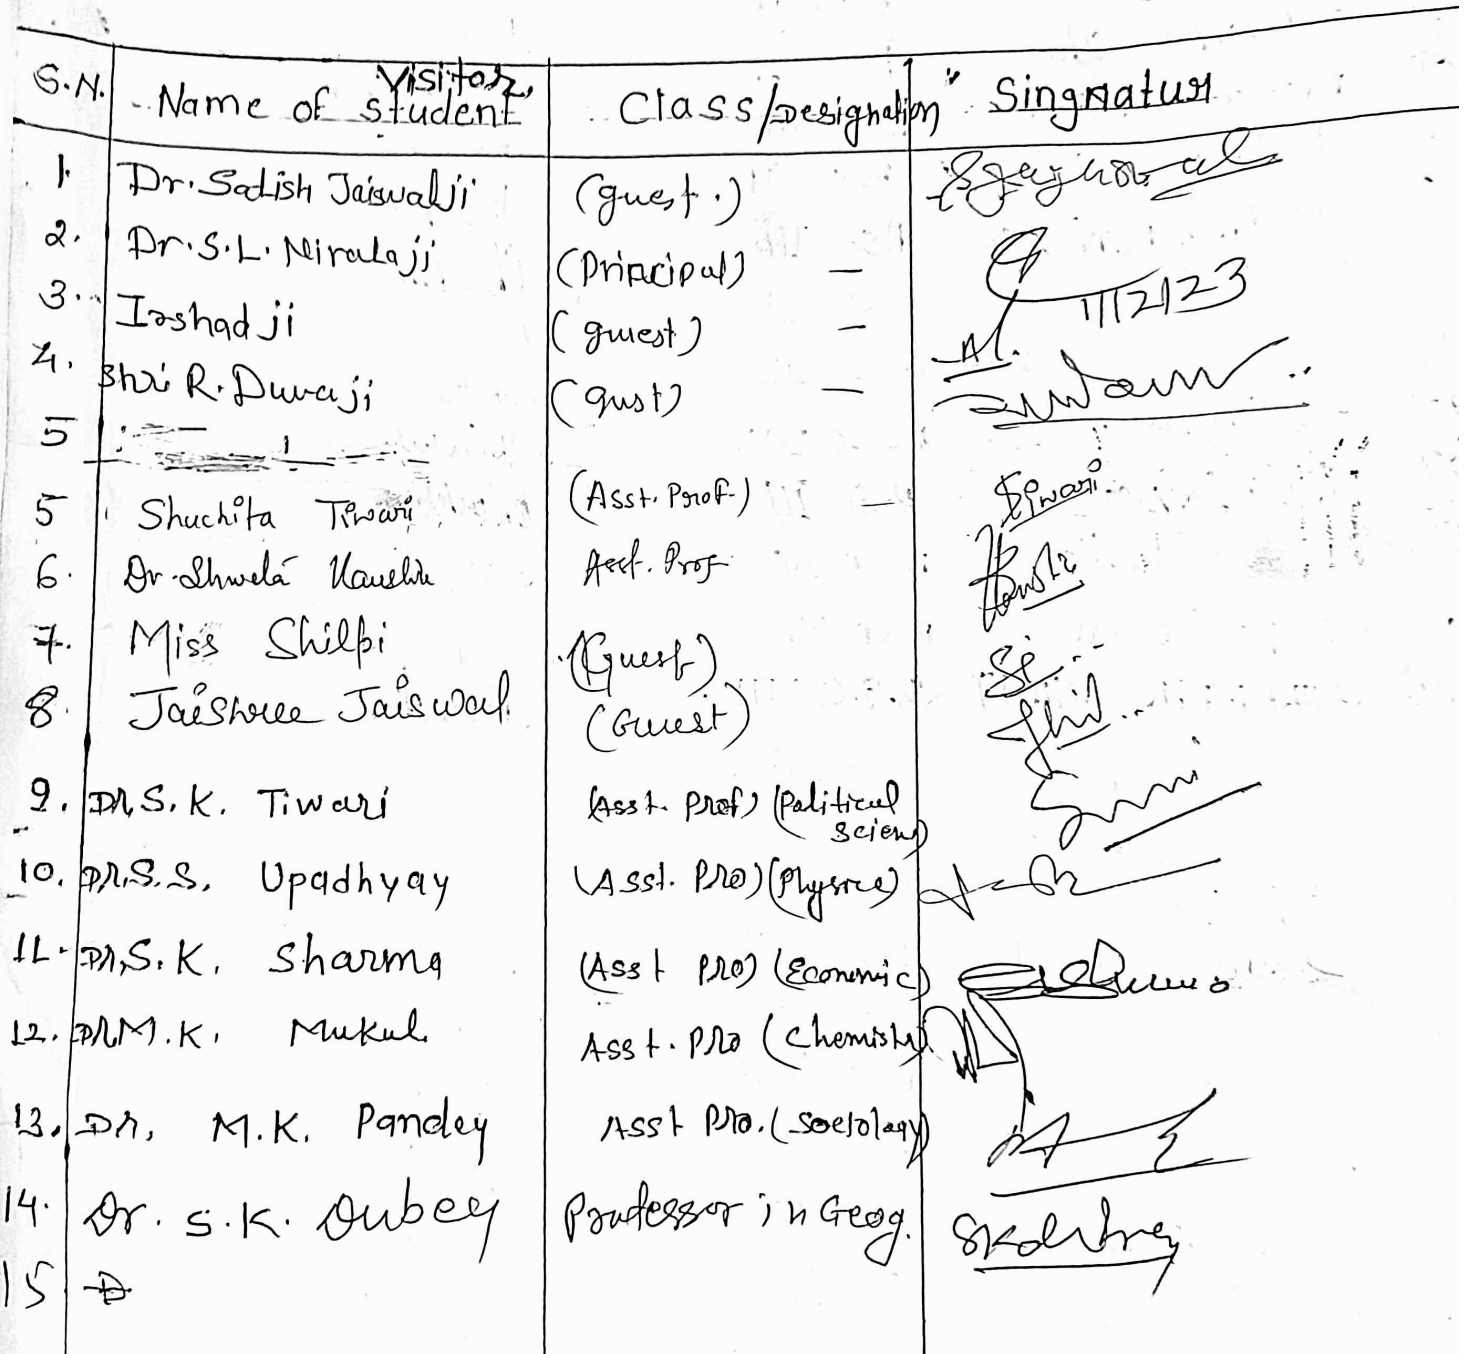 S.N. Name of student Visitor, Class/Designation Singnatur
1. Dr. Satish Jaiswalji (guest.)
2. Dr. S.L. Niralaji (Principal) — 1/12/23
3. Irshad ji (guest) —
4. Shri R. Duvaji (gust) —
5
5 Shuchita Tiwari (Asst. Prof.) — Tiwari
6. Dr. Shweta Kaushik Asst. Prof
7. Miss Shilpi (Guest)
8. Jaishree Jaiswal (Guest)
9. Dr. S. K. Tiwari (Asst. Prof) (Political Scien)
10. Dr. S. S. Upadhyay (Asst. Pro) (Physics)
11. Dr. S. K. Sharma (Asst Pro) (Economic)
12. Dr M. K. Mukul Asst. Pro (Chemistry)
13. Dr. M.K. Pandey Asst Pro. (Sociology)
14. Dr. S.K. Dubey Professor in Geog. SKDubey
15 D